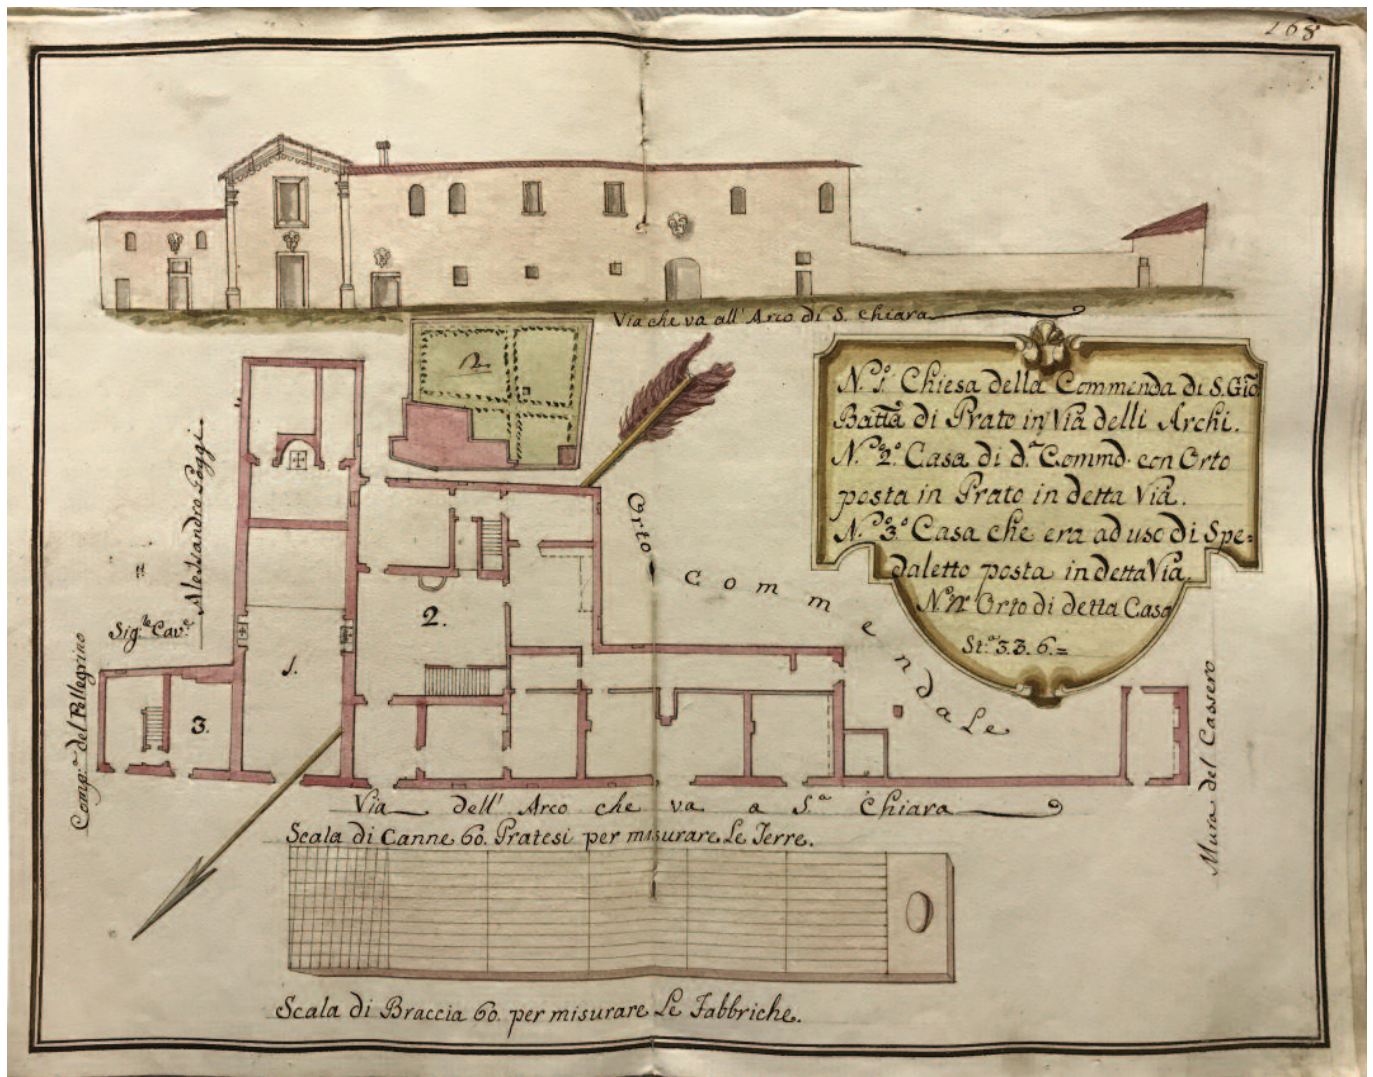 268
Via che va all' Arco di S. Chiara
12
N.º 1.º Chiesa della Commenda di S. Gio.
Batta di Prato in Via delli Archi.
N.º 2.º Casa di d.ª Commd. con Orto
posta in Prato in detta Via.
N.º 3.º Casa che era ad uso di Spe=
daletto posta in detta Via.
Orto di detta Casa
St.ª 3.3.6.=
Orto Commendale
Sig.re Cav.e
Alessandro Poggi
Comp.ª del Pellegrino
1.
2.
3.
Mura del Cassero
Via dell' Arco che va a S.ª Chiara
Scala di Canne 60. Pratesi per misurare Le Terre.
Scala di Braccia 60. per misurare Le Fabbriche.